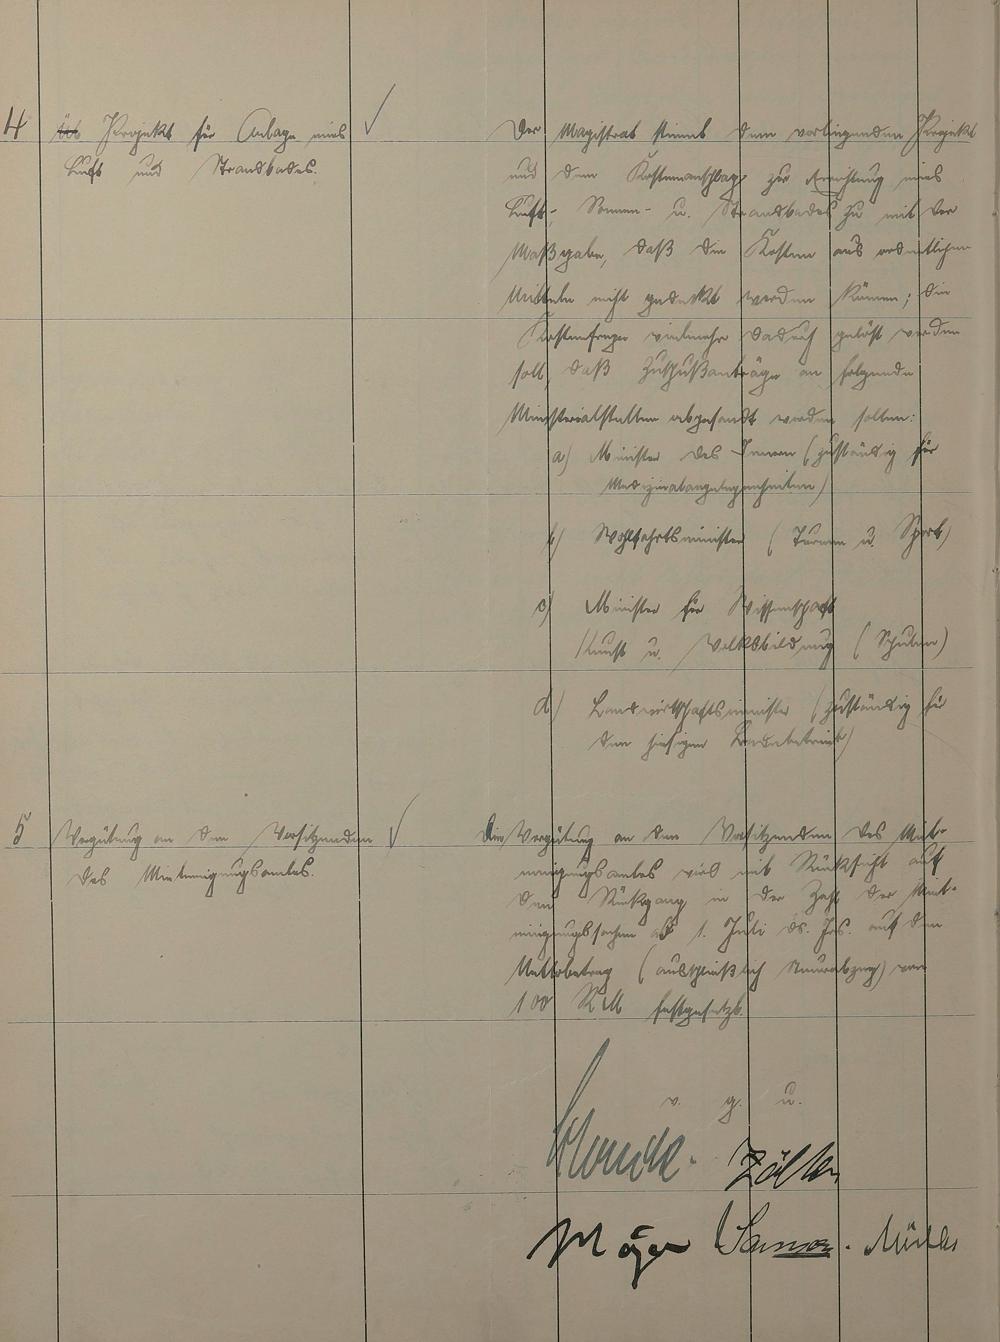 4
Projekt für Anlage eines
Luft und Strandbades.
Der Magistrat stimmt dem vorliegenden Projekt
und dem Kostenanschlag zur Errichtung eines
Luft-, Sonnen- u. Strandbades zu mit der
Maßgabe, daß die Kosten aus ordentlichen
Mitteln nicht gedeckt werden können; die
Kostenfrage vielmehr dadurch gelöst werden
soll, daß Zuschußanträge an folgende
Ministerialstellen abgesandt werden sollen:
a) Minister des Innern (zuständig für
Medizinalangelegenheiten)
b) Wohlfahrtsminister (Turnen u. Sport)
c) Minister für Wissenschaft
Kunst u. Volksbildung (Schulen)
d) Landwirtschaftsminister (zuständig für
den hiesigen Badebetrieb)
5
Vergütung an den Vorsitzenden
des Mieteinigungsamtes.
Die Vergütung an den Vorsitzenden des Miet-
einigungsamtes wird mit Rücksicht auf
den Rückgang in der Zahl der Miet-
einigungssachen ab 1. Juli ds. Js. auf den
Nettobetrag (ausschließlich Steuerabzug) von
100 RM festgesetzt.
v. g. u.